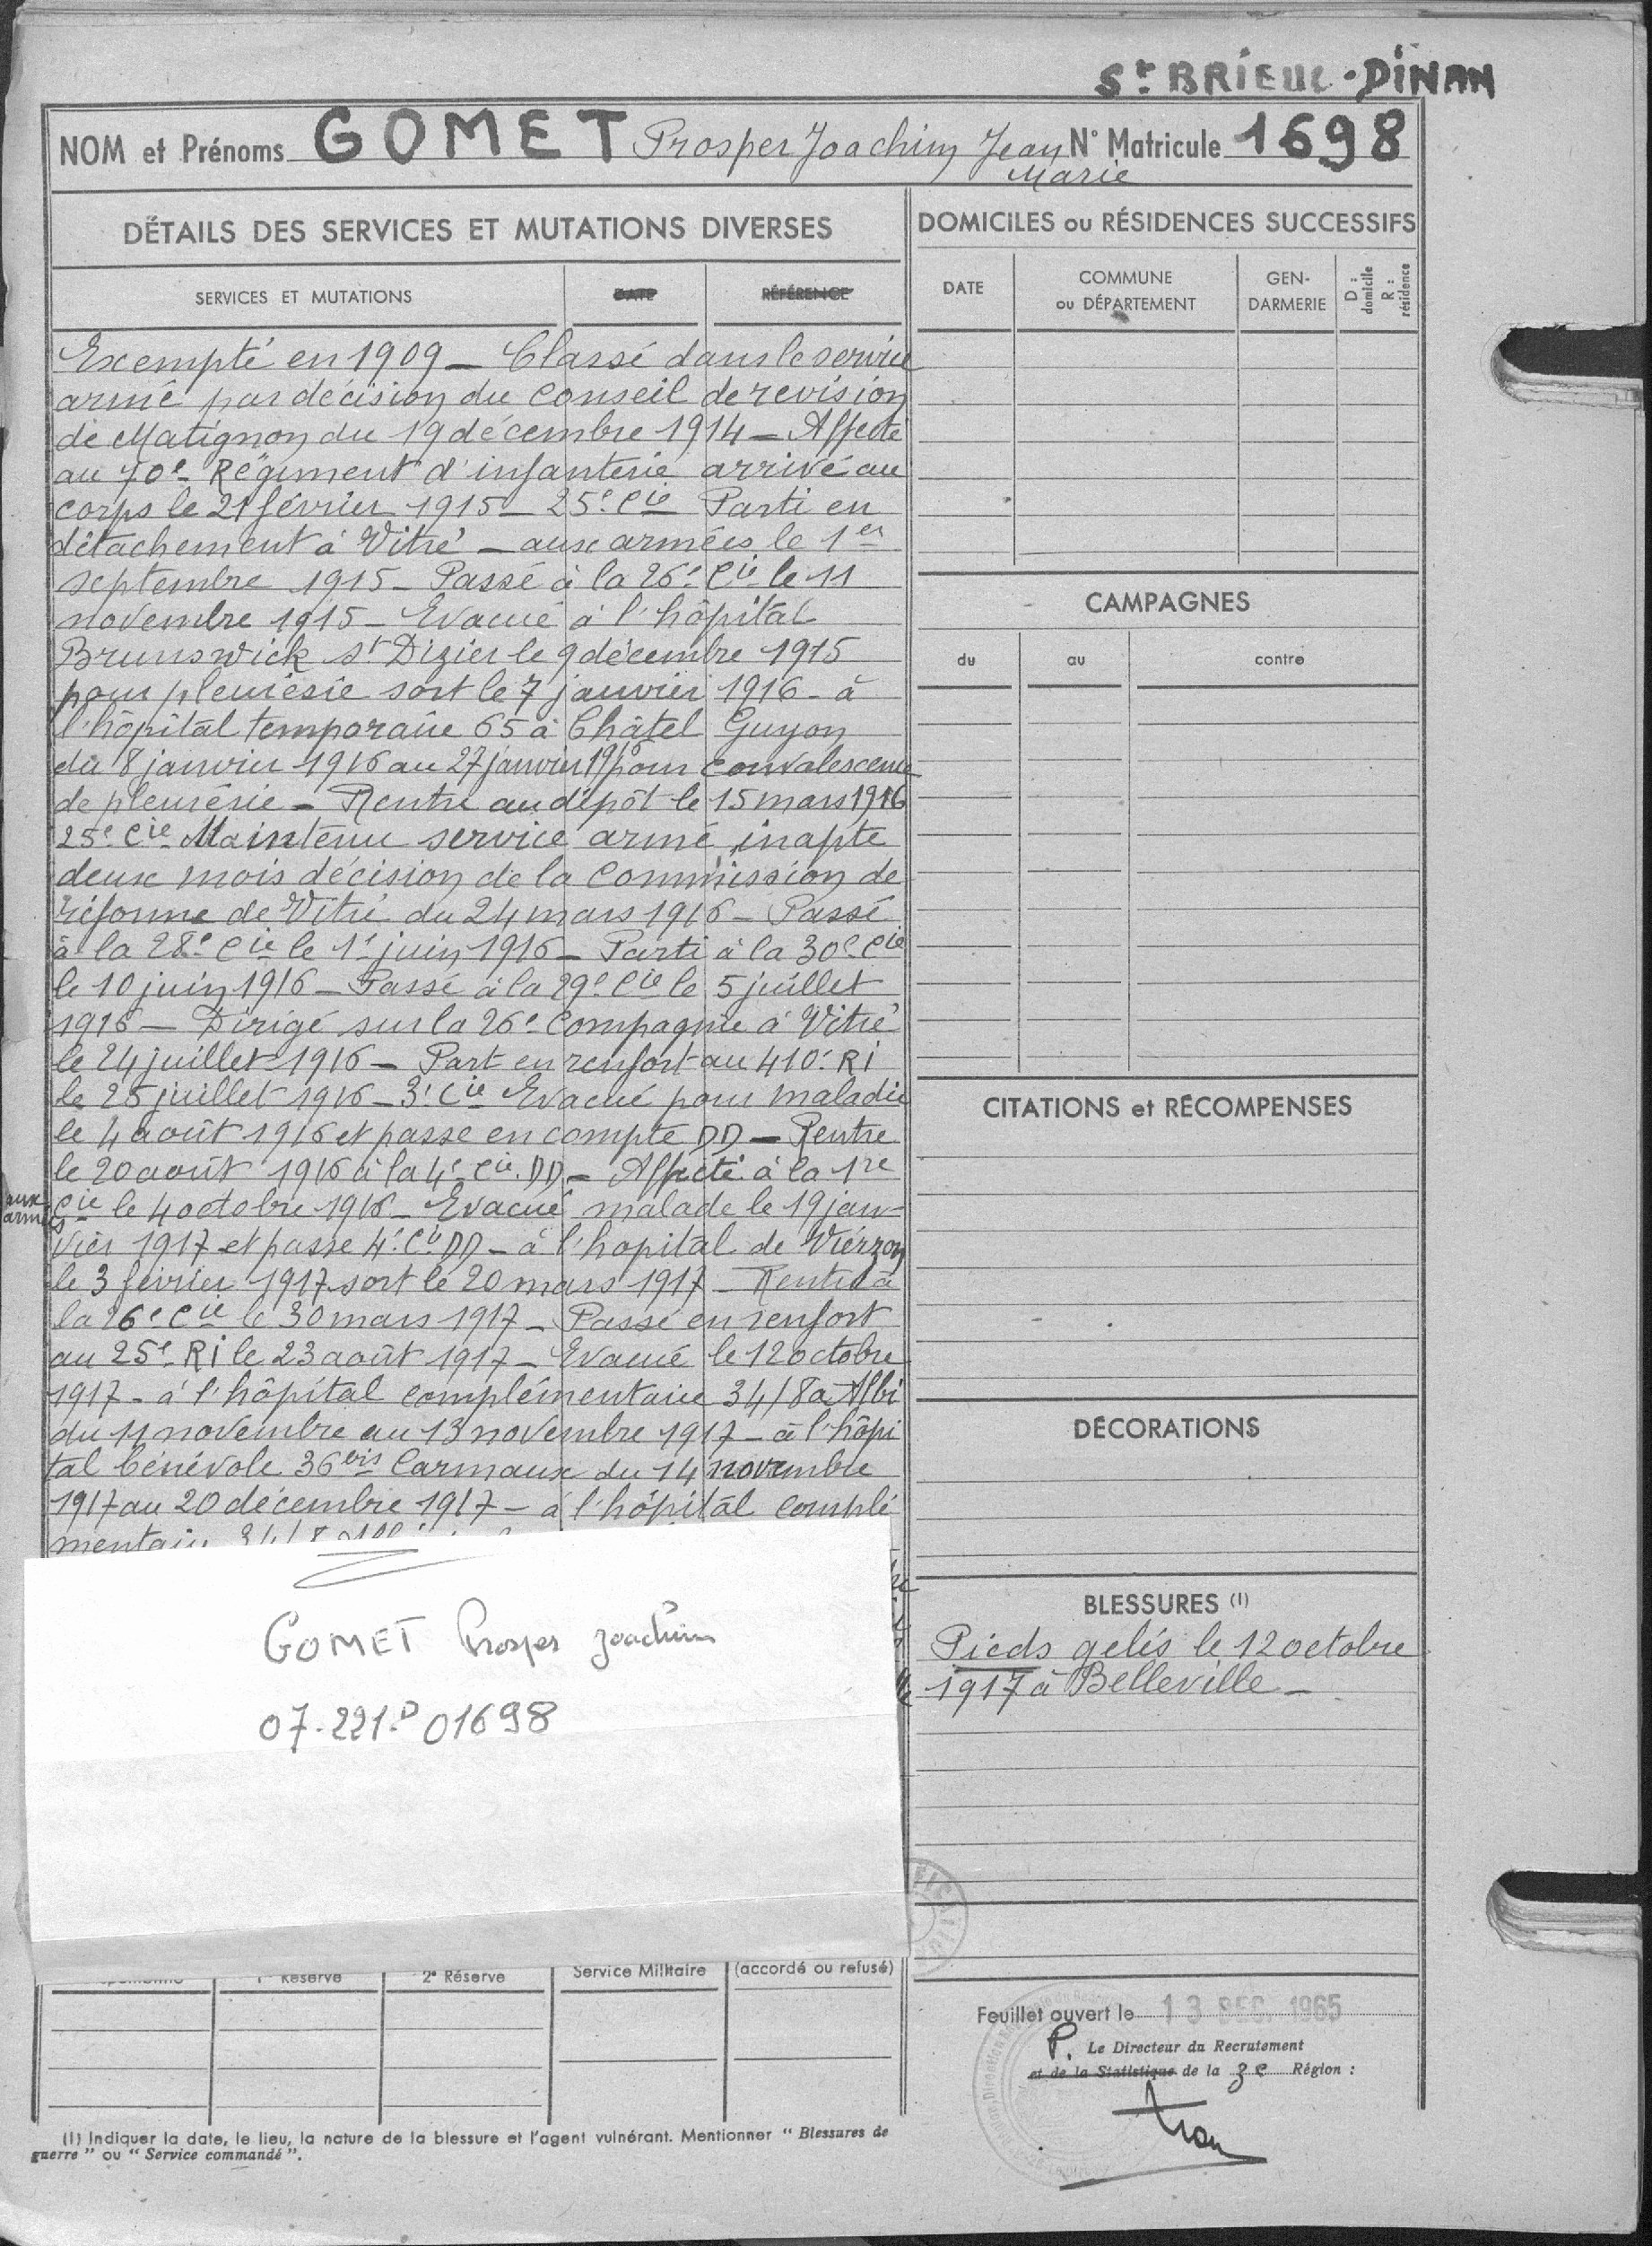 St BRIEUC - DINAN
NOM et Prénoms GOMET Prosper Joachim Jean Marie N° Matricule 1698
DÉTAILS DES SERVICES ET MUTATIONS DIVERSES
SERVICES ET MUTATIONS DATE RÉFÉRENCE
Exempté en 1909 - Classé dans le service
armé par décision du Conseil de revision
de Matignon du 19 décembre 1914 - Affecté
au 70e Régiment d'infanterie arrivé au
corps le 21 février 1915 - 25e Cie Parti en
détachement à Vitré - aux armées le 1er
septembre 1915 - Passé à la 26e Cie le 11
novembre 1915 - Evacué à l'hôpital
Brunswick St Dizier le 9 décembre 1915
pour pleurésie sort le 7 janvier 1916 - à
l'hôpital temporaire 65 à Châtel Guyon
du 8 janvier 1916 au 27 janvier 1916 pour convalescence
de pleurésie - Rentré au dépôt le 15 mars 1916
25e Cie Maintenu service armé, inapte
deux mois décision de la Commission de
réforme de Vitré du 24 mars 1916 - Passé
à la 28e Cie le 1er juin 1916 - Parti à la 30e Cie
le 10 juin 1916 - Passé à la 29e Cie le 5 juillet
1916 - Dirigé sur la 26e Compagnie à Vitré
le 24 juillet 1916 - Part en renfort au 410e RI
le 25 juillet 1916 - 3e Cie Evacué pour maladie
le 4 août 1916 et passe en compte DD - Rentre
le 20 août 1916 à la 4e Cie DD - Affecté à la 1re
aux armées
Cie le 4 octobre 1916 - Evacué malade le 19 jan-
vier 1917 et passe 4e Cie DD - à l'hopital de Vierzon
le 3 février 1917 sort le 20 mars 1917 - Rentré à
la 26e Cie le 30 mars 1917 - Passé en renfort
au 25e RI le 23 août 1917 - Evacué le 12 octobre
1917 - à l'hôpital complémentaire 34/8 a Albi
du 11 novembre au 13 novembre 1917 - à l'hôpi
tal bénévole 36 bis Carmaux du 14 novembre
1917 au 20 décembre 1917 - à l'hôpital complé
GOMET Prosper Joachim
07-221.P 01698
Réserve 2e Réserve Service Militaire (accordé ou refusé)
(1) Indiquer la date, le lieu, la nature de la blessure et l'agent vulnérant. Mentionner " Blessures de
guerre " ou " Service commandé ".
DOMICILES ou RÉSIDENCES SUCCESSIFS
DATE COMMUNE ou DÉPARTEMENT GEN-DARMERIE D : domicile R : résidence
CAMPAGNES
du au contre
CITATIONS et RÉCOMPENSES
DÉCORATIONS
BLESSURES (1)
Pieds gelés le 12 octobre
1917 à Belleville -
Feuillet ouvert le 13 DEC. 1965
P. Le Directeur du Recrutement
et de la Statistique de la 3e Région :